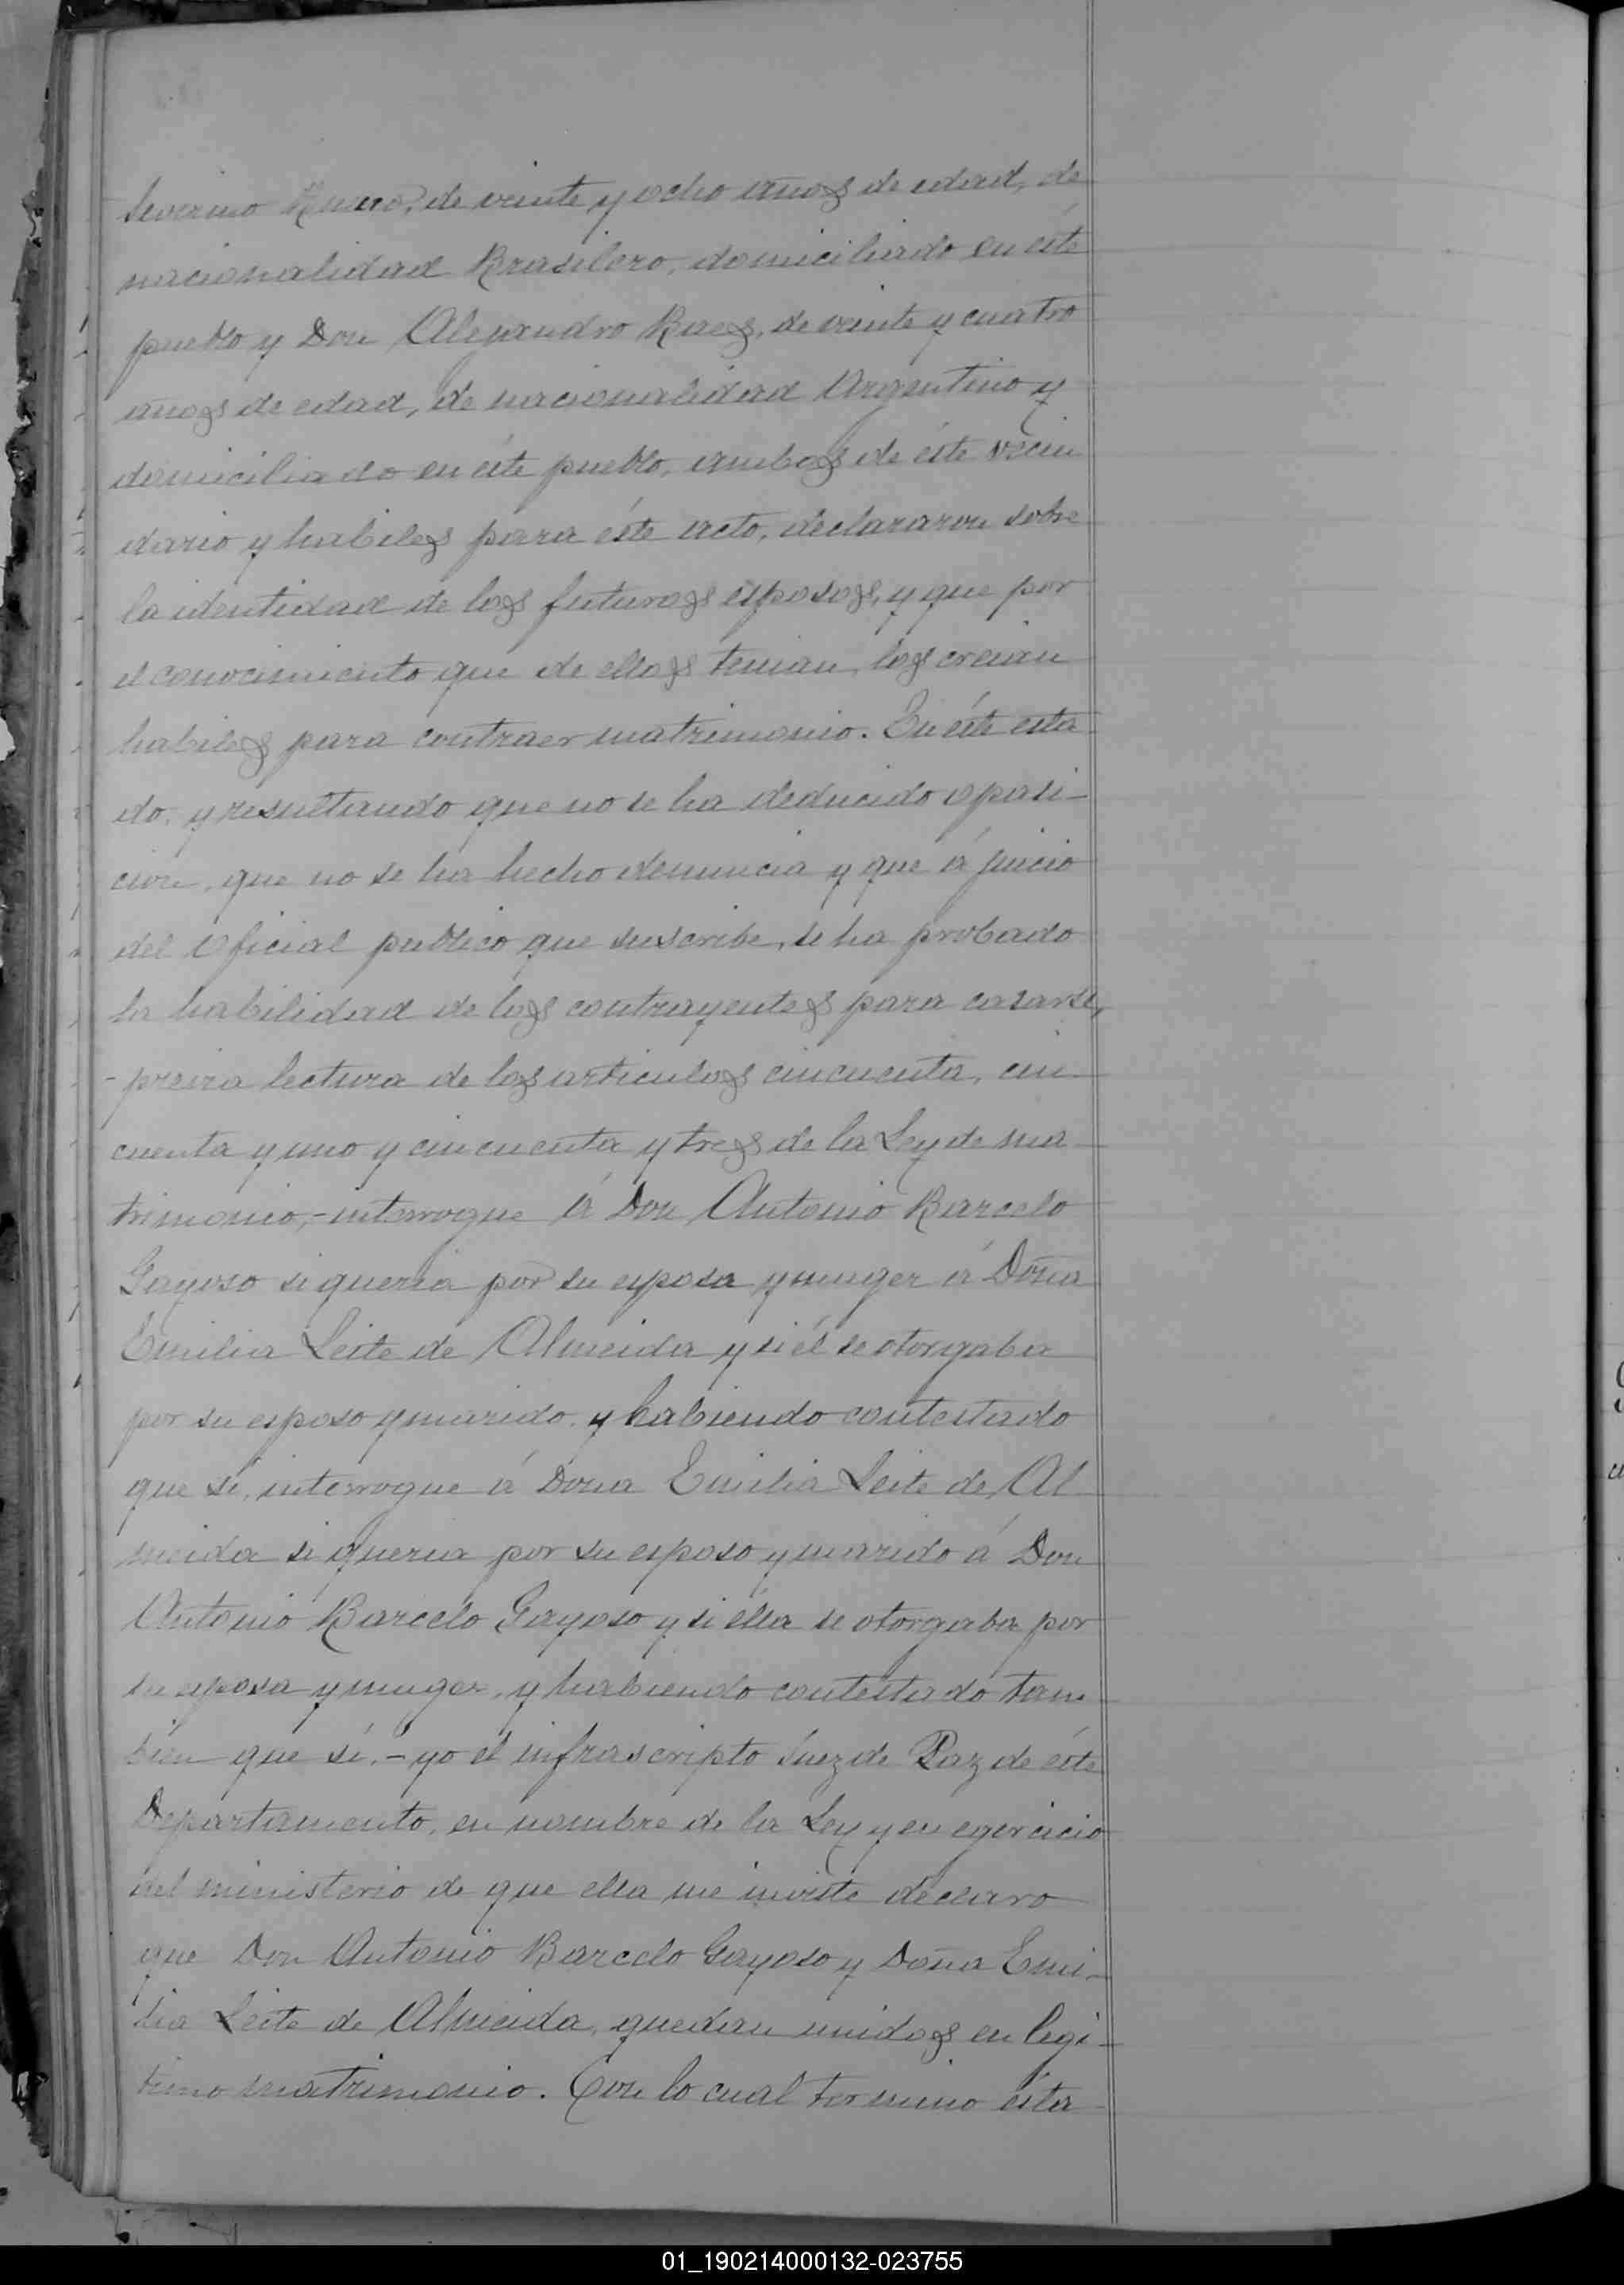 Severino de veinte y ocho años de edad, de
nacionalidad Brasilero, domiciliado en éste
pueblo y Don Alejandro Baes, de veinte y cuatro
años de edad, de nacionalidad Argentino y
domiciliado en éste pueblo, ambos de éste vecin
dario y habiles para éste acto, declararon sobre
la identidad de los futuros esposos, y que por
el conocimiento que de ellos tenian, los creian
habiles para contraer matrimonio. En éste esta
do, y resultando que no se ha deducido oposi-
cion, que no se ha hecho denuncia y que á juicio
del Oficial publico que suscribe, se ha probado
la habilidad de los contrayentes para casarse,
- previa lectura de los articulos cincuenta, cin
cuenta y uno y cincuenta y tres de la Ley de ma
trimonio, - interrogue á Don Antonio Barcelo
Gayoso si queria por su esposa y muger á Doña
Emilia Leite de Almeida y si él se otorgaba
por su esposo y marido, y habiendo contestado
que sí, interrogue á Doña Emilia Leite de Al
meida si queria por su esposo y marido á Don
Antonio Barcelo Gayoso y si élla se otorgaba por
su esposa y muger, y habiendo contestado tam
bien que sí, - yo el infrascripto Juez de Paz de éste
Departamento, en nombre de la Ley y en egercicio
del ministerio de que ella me inviste declaro
que Don Antonio Barcelo Gayoso y Doña Emi-
lia Leite de Almeida, quedan unidos en legi-
timo matrimonio. Con lo cual termino ésta
01_190214000132-023755